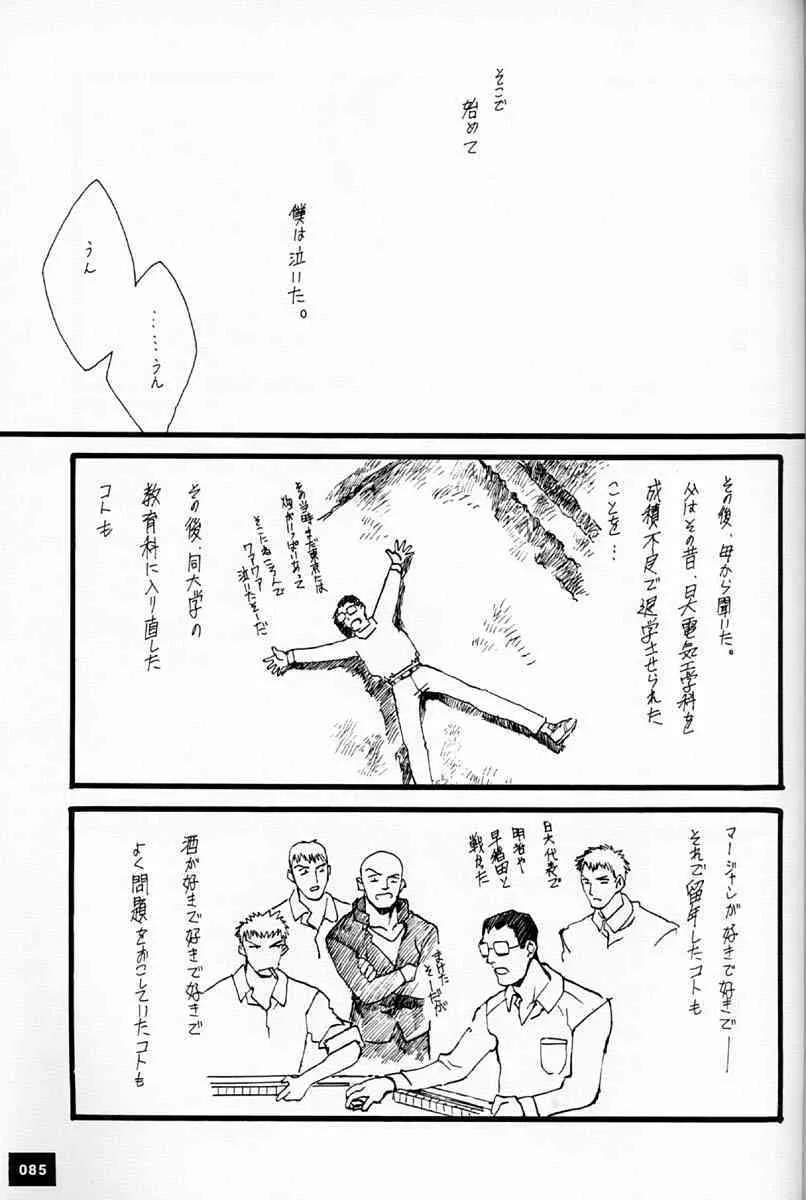 そこで
始めて
僕は泣いた。
うん
……うん
その後、母から聞いた。
父はその昔、日大電気工学科を
成積不良で退学させられた
ことを…
その当時まだ東京には
畑がいっぱいあって
そこにねころんで
ワァワァ
泣いたそーだ
その後、同大学の
教育科に入り直した
コトも
マージャンが好きで好きで──
それで留年したコトも
日大代表で
明治や
早稲田と
戦かった
まけた
そーだが
酒が好きで好きで好きで
よく問題をおこしていたコトも
085